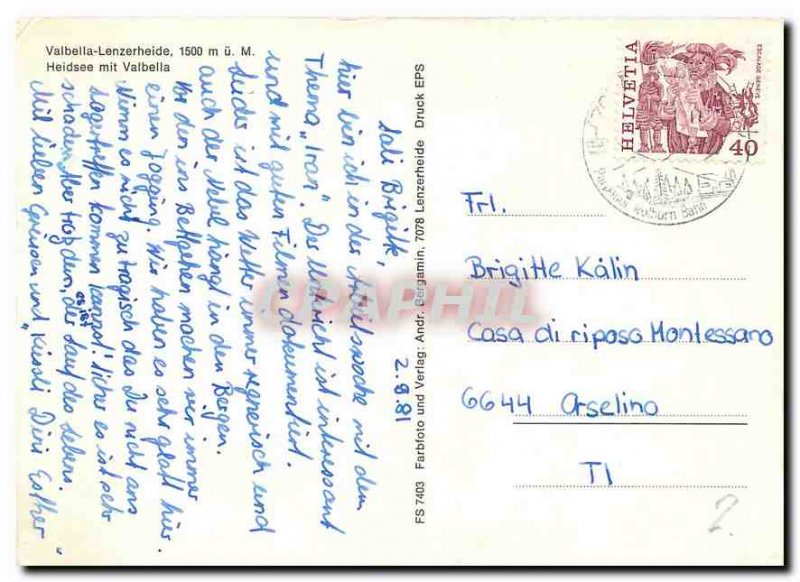 Valbella-Lenzerheide, 1500 m ü. M.
Heidsee mit Valbella
2.9.81
Sali Brigitte,
hier bin ich in der Arbeitswoche mit dem
Thema „Iran". Der Unterricht ist interessant
und mit guten Filmen dokumentiert.
Leider ist das Wetter immer regnerisch und
auch der Nebel hängt in den Bergen.
Vor den ins Bettgehen machen wir immer
einen Jogging. Wir haben es sehr glatt hier.
Nimm es nicht zu tragisch das Du nicht ans
Lagertreffen kommen kannst! Sicher es ist sehr
schaden. Aber trotzdem, der Lauf des Lebens.
es ist
Mit lieben Grüssen und „Küssli" Dini Esther
FS 7403 Farbfoto und Verlag: Andr. Bergamin, 7078 Lenzerheide Druck EPS
HELVETIA
ESCALADE GENEVE
40
Parpaner Rothorn Bahn
Frl.
Brigitte Kälin
Casa di riposo Montessano
6644 Orselino
TI
2.
CPAPHIL